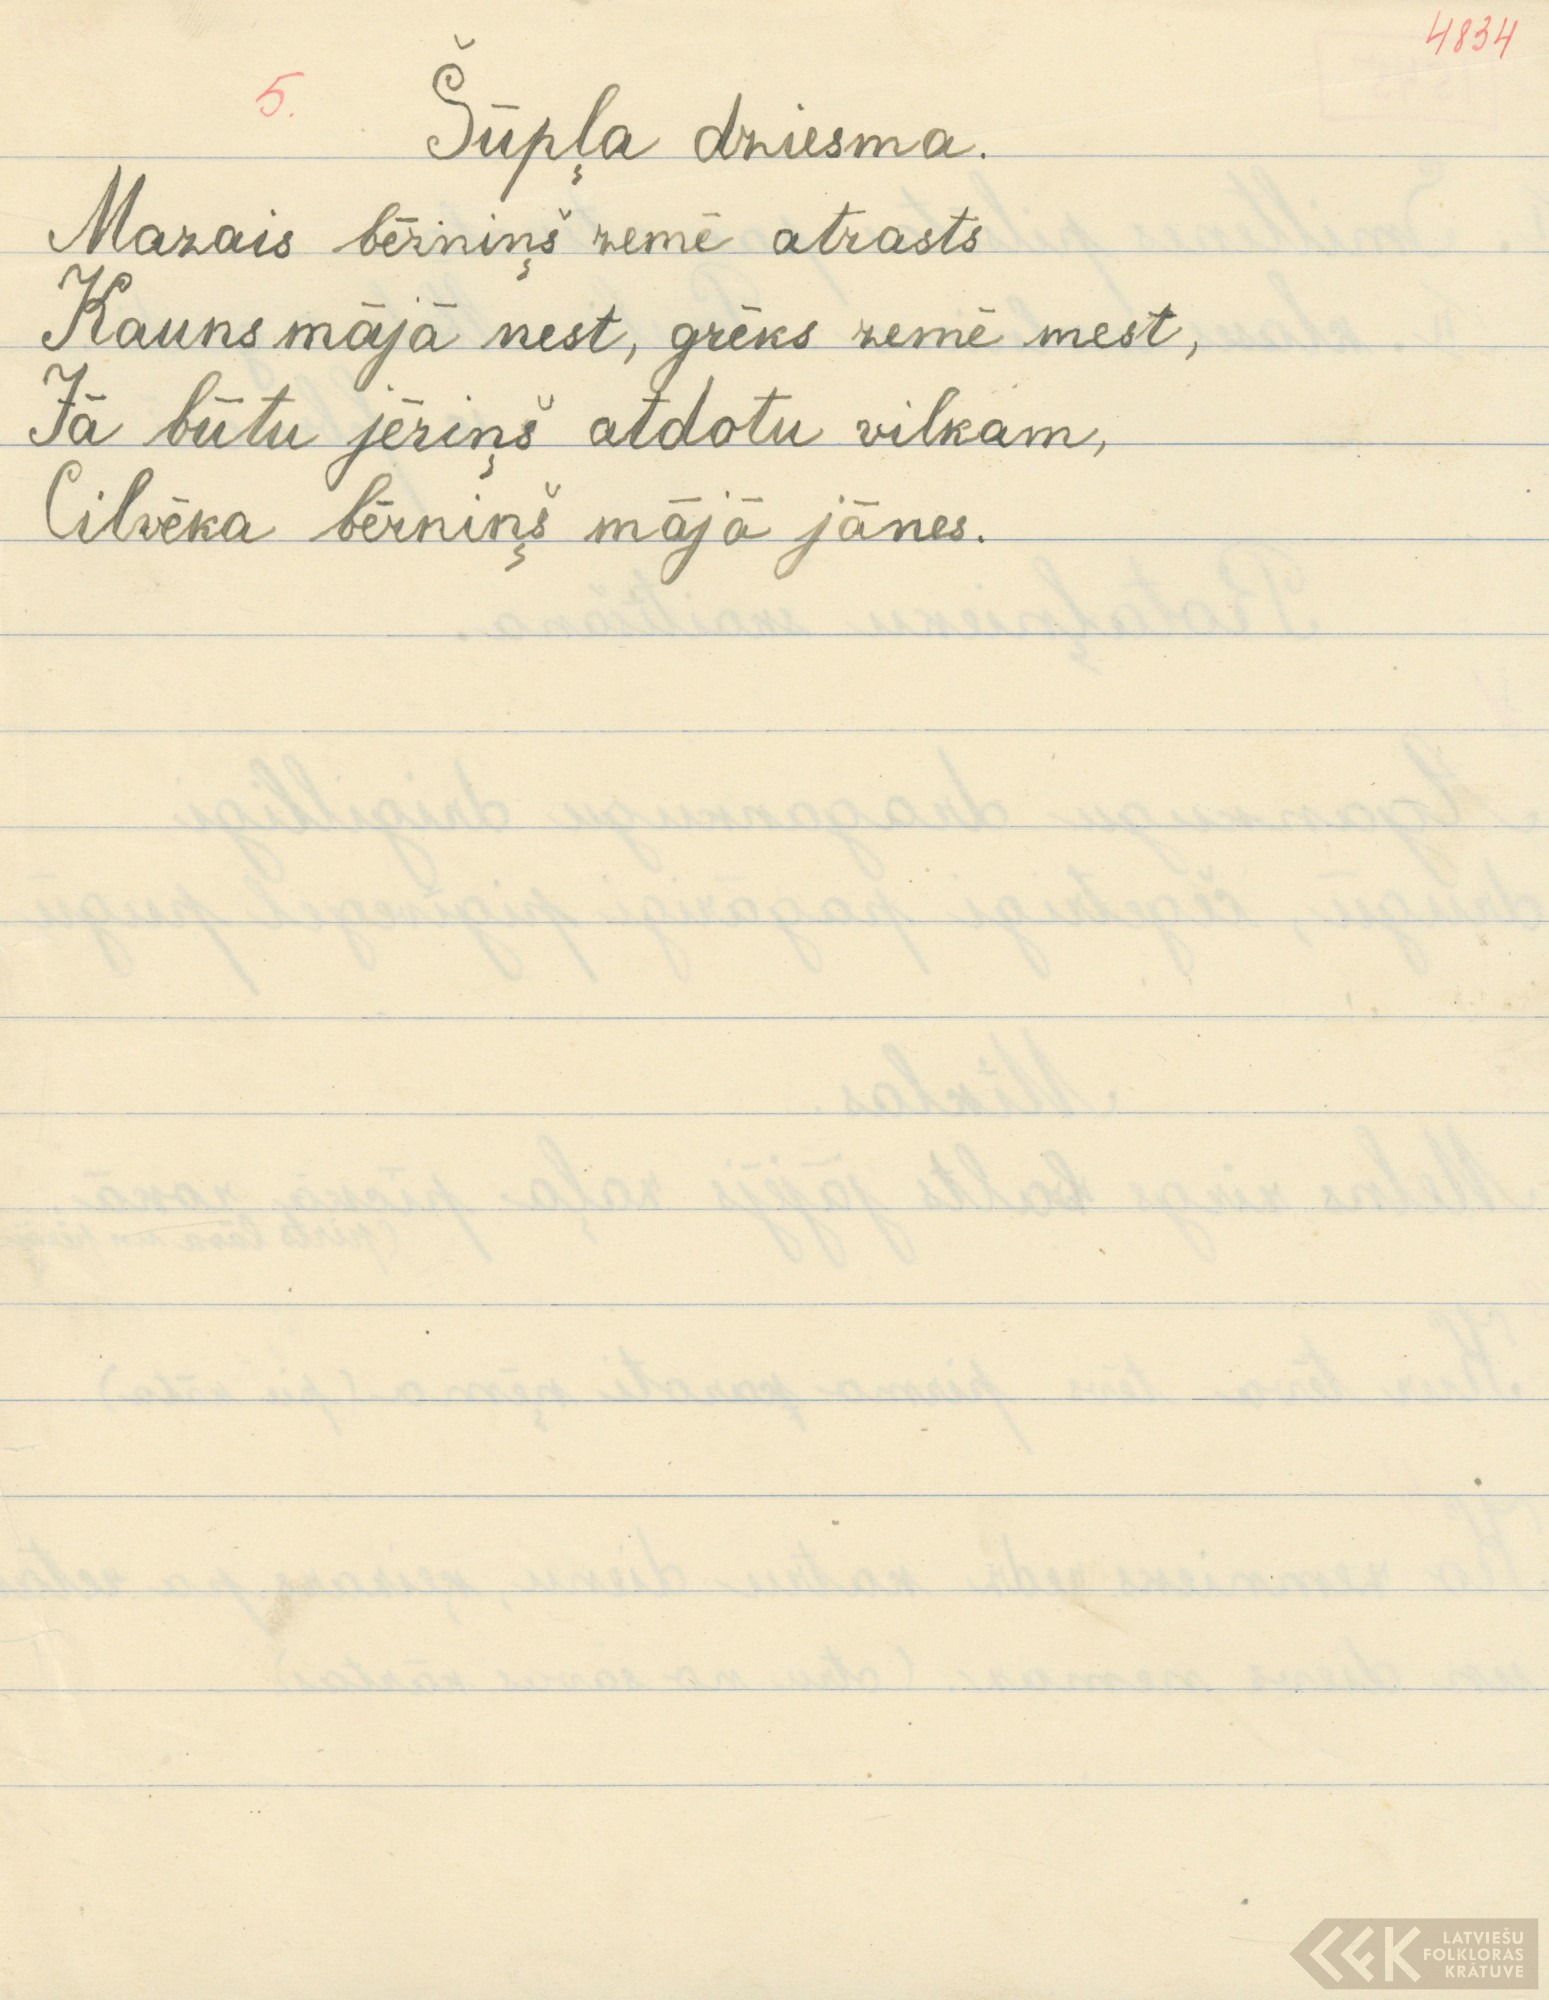 4834
5. Šūpļa dziesma.
Mazais bērniņš zemē atrasts
Kauns mājā nest, grēks zemē mest,
Jā būtu jēriņš atdotu vilkam,
Cilvēka bērniņš mājā jānes.
LATVIEŠU
FOLKLORAS
KRĀTUVE